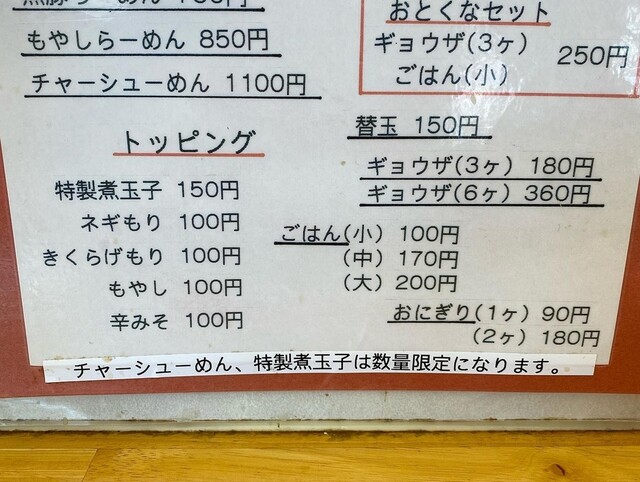 おとくなセット
ギョウザ(3ヶ) 250円
ごはん(小)
もやしらーめん 850円
チャーシューめん 1100円
替玉 150円
ギョウザ(3ヶ) 180円
ギョウザ(6ヶ) 360円
ごはん(小) 100円
(中) 170円
(大) 200円
おにぎり(1ヶ) 90円
(2ヶ) 180円
トッピング
特製煮玉子 150円
ネギもり 100円
きくらげもり 100円
もやし 100円
辛みそ 100円
チャーシューめん、特製煮玉子は数量限定になります。